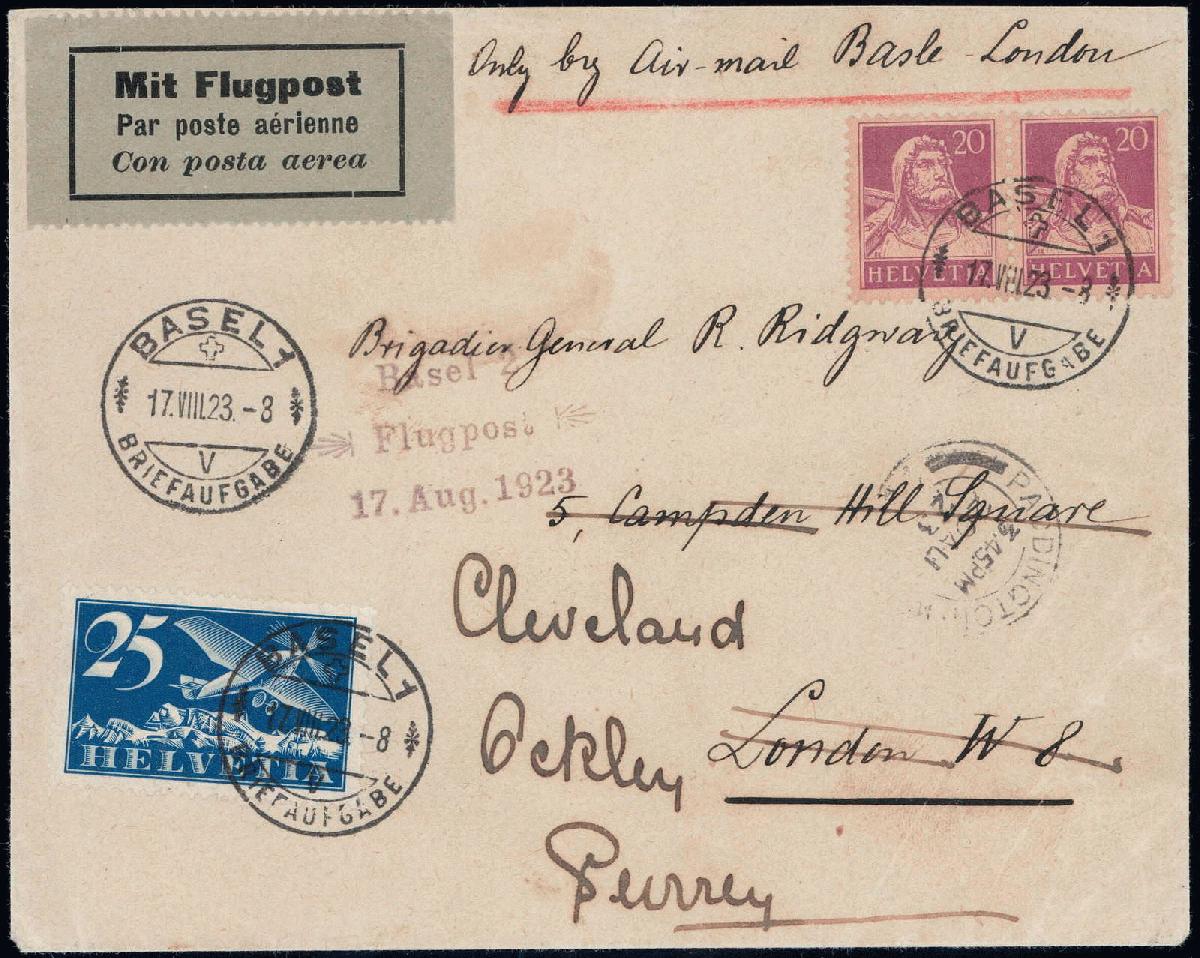 Mit Flugpost
Par poste aérienne
Con posta aerea
Only by Air-mail Basle-London
20
HELVETIA
20
HELVETIA
BASEL 1
17.VIII.23.-8
V
BRIEFAUFGABE
BASEL 1
17.VIII.23.-8
V
BRIEFAUFGABE
Brigadier General R. Ridgway
Basel 2
Flugpost
17. Aug. 1923
5, Campden Hill Square
PADDINGTON
3.45PM
Cleveland
25
HELVETIA
BASEL 1
17.VIII.23.-8
V
BRIEFAUFGABE
Ockley
London W 8
Surrey